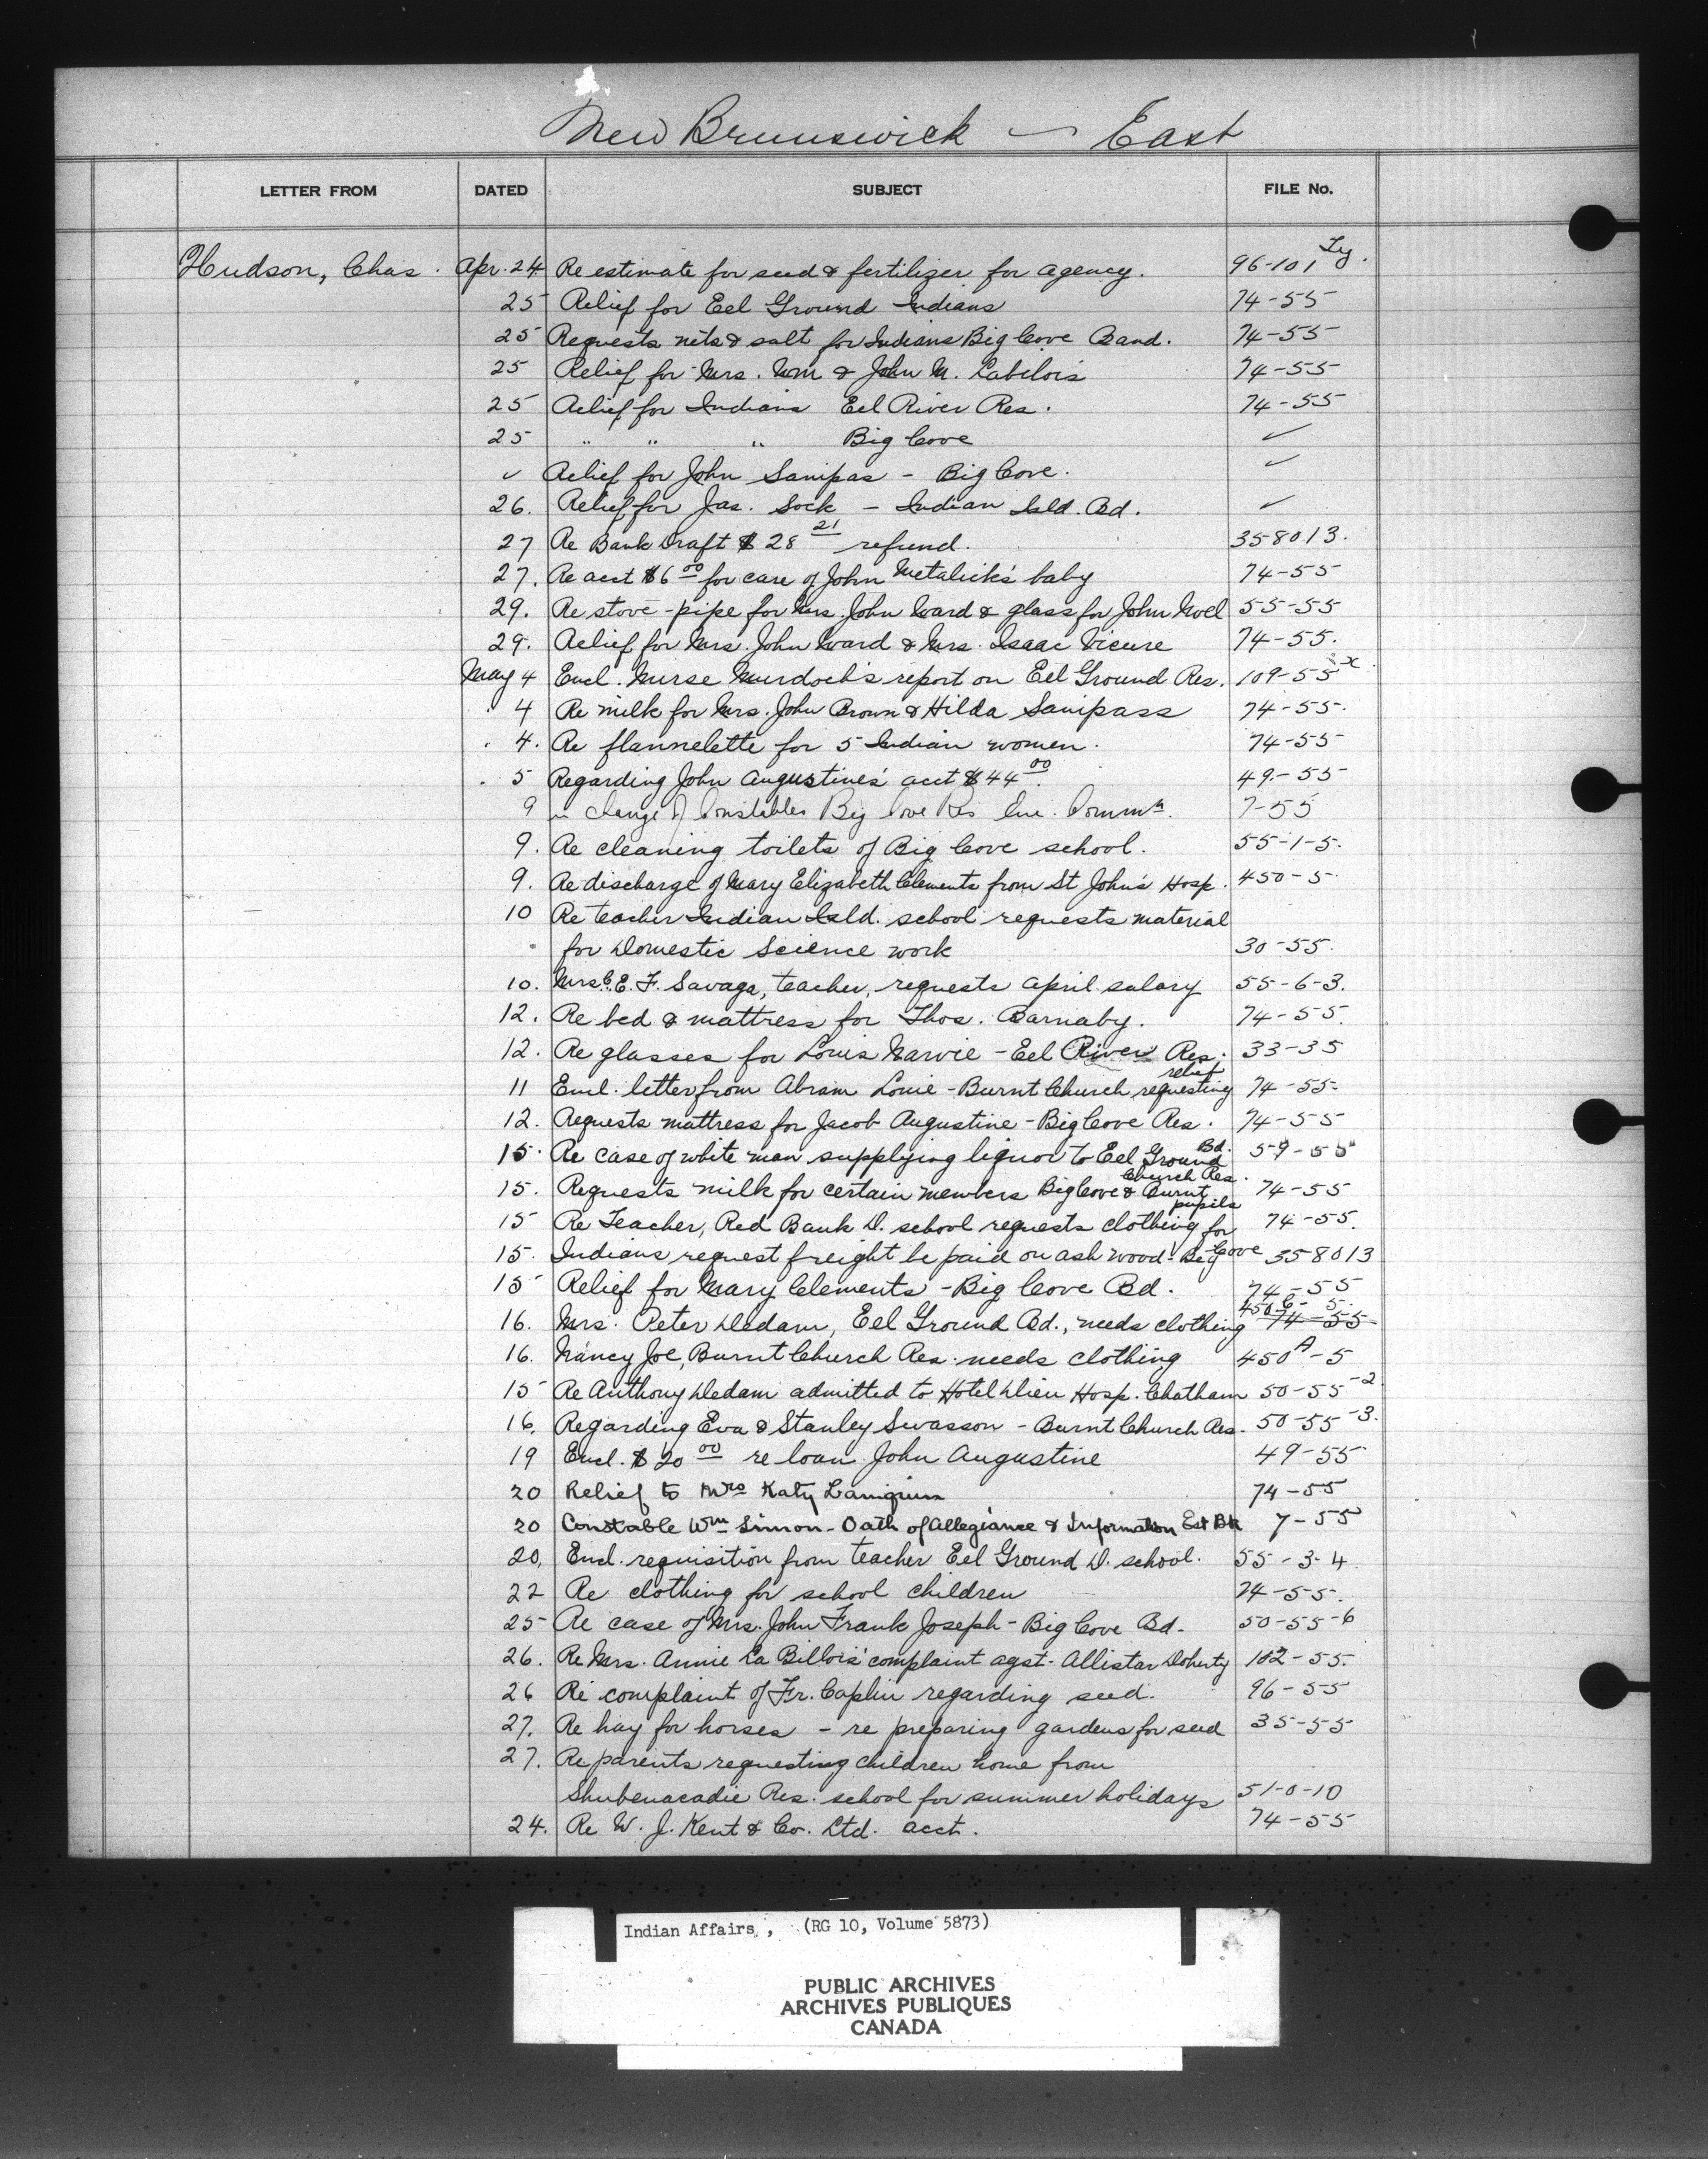 New Brunswick — East
LETTER FROM DATED SUBJECT FILE No.
Hudson, Chas. Apr. 24 Re estimate for seed & fertilizer for agency. 96-101
25 Relief for Eel Ground Indians 74-55
25 Requests nets & salt for Indians Big Cove Band. 74-55
25 Relief for Mrs. Wm & John M. Labilois 74-55
25 Relief for Indians Eel River Res. 74-55
25 " " " Big Cove ✓
✓ Relief for John Sanipas - Big Cove. ✓
26. Relief for Jas. Sock - Indian Isld. Bd. ✓
27 Re Bank Draft $28 21 refund. 358013.
27. Re acct $6 00 for care of John Metalick's baby 74-55
29. Re stove-pipe for Mrs. John Ward & glass for John Noel 55-55
29. Relief for Mrs. John Ward & Mrs. Isaac Vicure 74-55.
May 4 Encl. Nurse Murdoch's report on Eel Ground Res. 109-55 x
4 Re milk for Mrs. John Brown & Hilda Sanipass 74-55.
4. Re flannelette for 5 Indian women. 74-55
5 Regarding John Augustine's acct $44 00. 49-55
9 in charge of Constables Big Cove Res 7-55
9. Re cleaning toilets of Big Cove school. 55-1-5.
9. Re discharge of Mary Elizabeth Clements from St John's Hosp. 450-5.
10 Re teacher Indian Isld. school requests material
for Domestic Science work 30-55.
10. Mrs. C. E. F. Savage, teacher, requests April salary 55-6-3.
12. Re bed & mattress for Thos. Barnaby. 74-55.
12. Re glasses for Louis Narvie - Eel River Res. 33-35
11 Encl. letter from Abram Louie - Burnt Church requesting relief 74-55
12. Requests mattress for Jacob Augustine - Big Cove Res. 74-55
15. Re case of white man supplying liquor to Eel Ground Bd. 59-55
15. Requests milk for certain members Big Cove & Burnt Church Res. 74-55
15 Re Teacher, Red Bank D. school requests clothing for pupils 74-55.
15. Indians request freight be paid on ash wood - Big Cove 358013
15 Relief for Mary Clements - Big Cove Bd. 74-55
16. Mrs. Peter Dedam, Eel Ground Bd., needs clothing 450-6-5. 74-55
16. Nancy Joe, Burnt Church Res. needs clothing 450A-5
15 Re Anthony Dedam admitted to Hotel Dieu Hosp. Chatham 50-55-2
16. Regarding Eva & Stanley Swasson - Burnt Church Res. 50-55-3.
19 Encl. $20 00 re loan John Augustine 49-55
20 Relief to Mrs Katy 74-55
20 Constable Wm Simon - Oath of Allegiance & Information 7-55
20. Encl. requisition from teacher Eel Ground D. school. 55-3-4.
22 Re clothing for school children 74-55.
25 Re case of Mrs. John Frank Joseph - Big Cove Bd. 50-55-6
26. Re Mrs. Annie La Billois' complaint agst. Allistar Doherty 102-55.
26 Re complaint of Fr. Caplin regarding seed. 96-55
27. Re hay for horses - re preparing gardens for seed 35-55
27. Re parents requesting children home from
Shubenacadie Res. school for summer holidays 51-0-10
24. Re W. J. Kent & Co. Ltd. acct. 74-55
Indian Affairs, (RG 10, Volume 5873)
PUBLIC ARCHIVES
ARCHIVES PUBLIQUES
CANADA